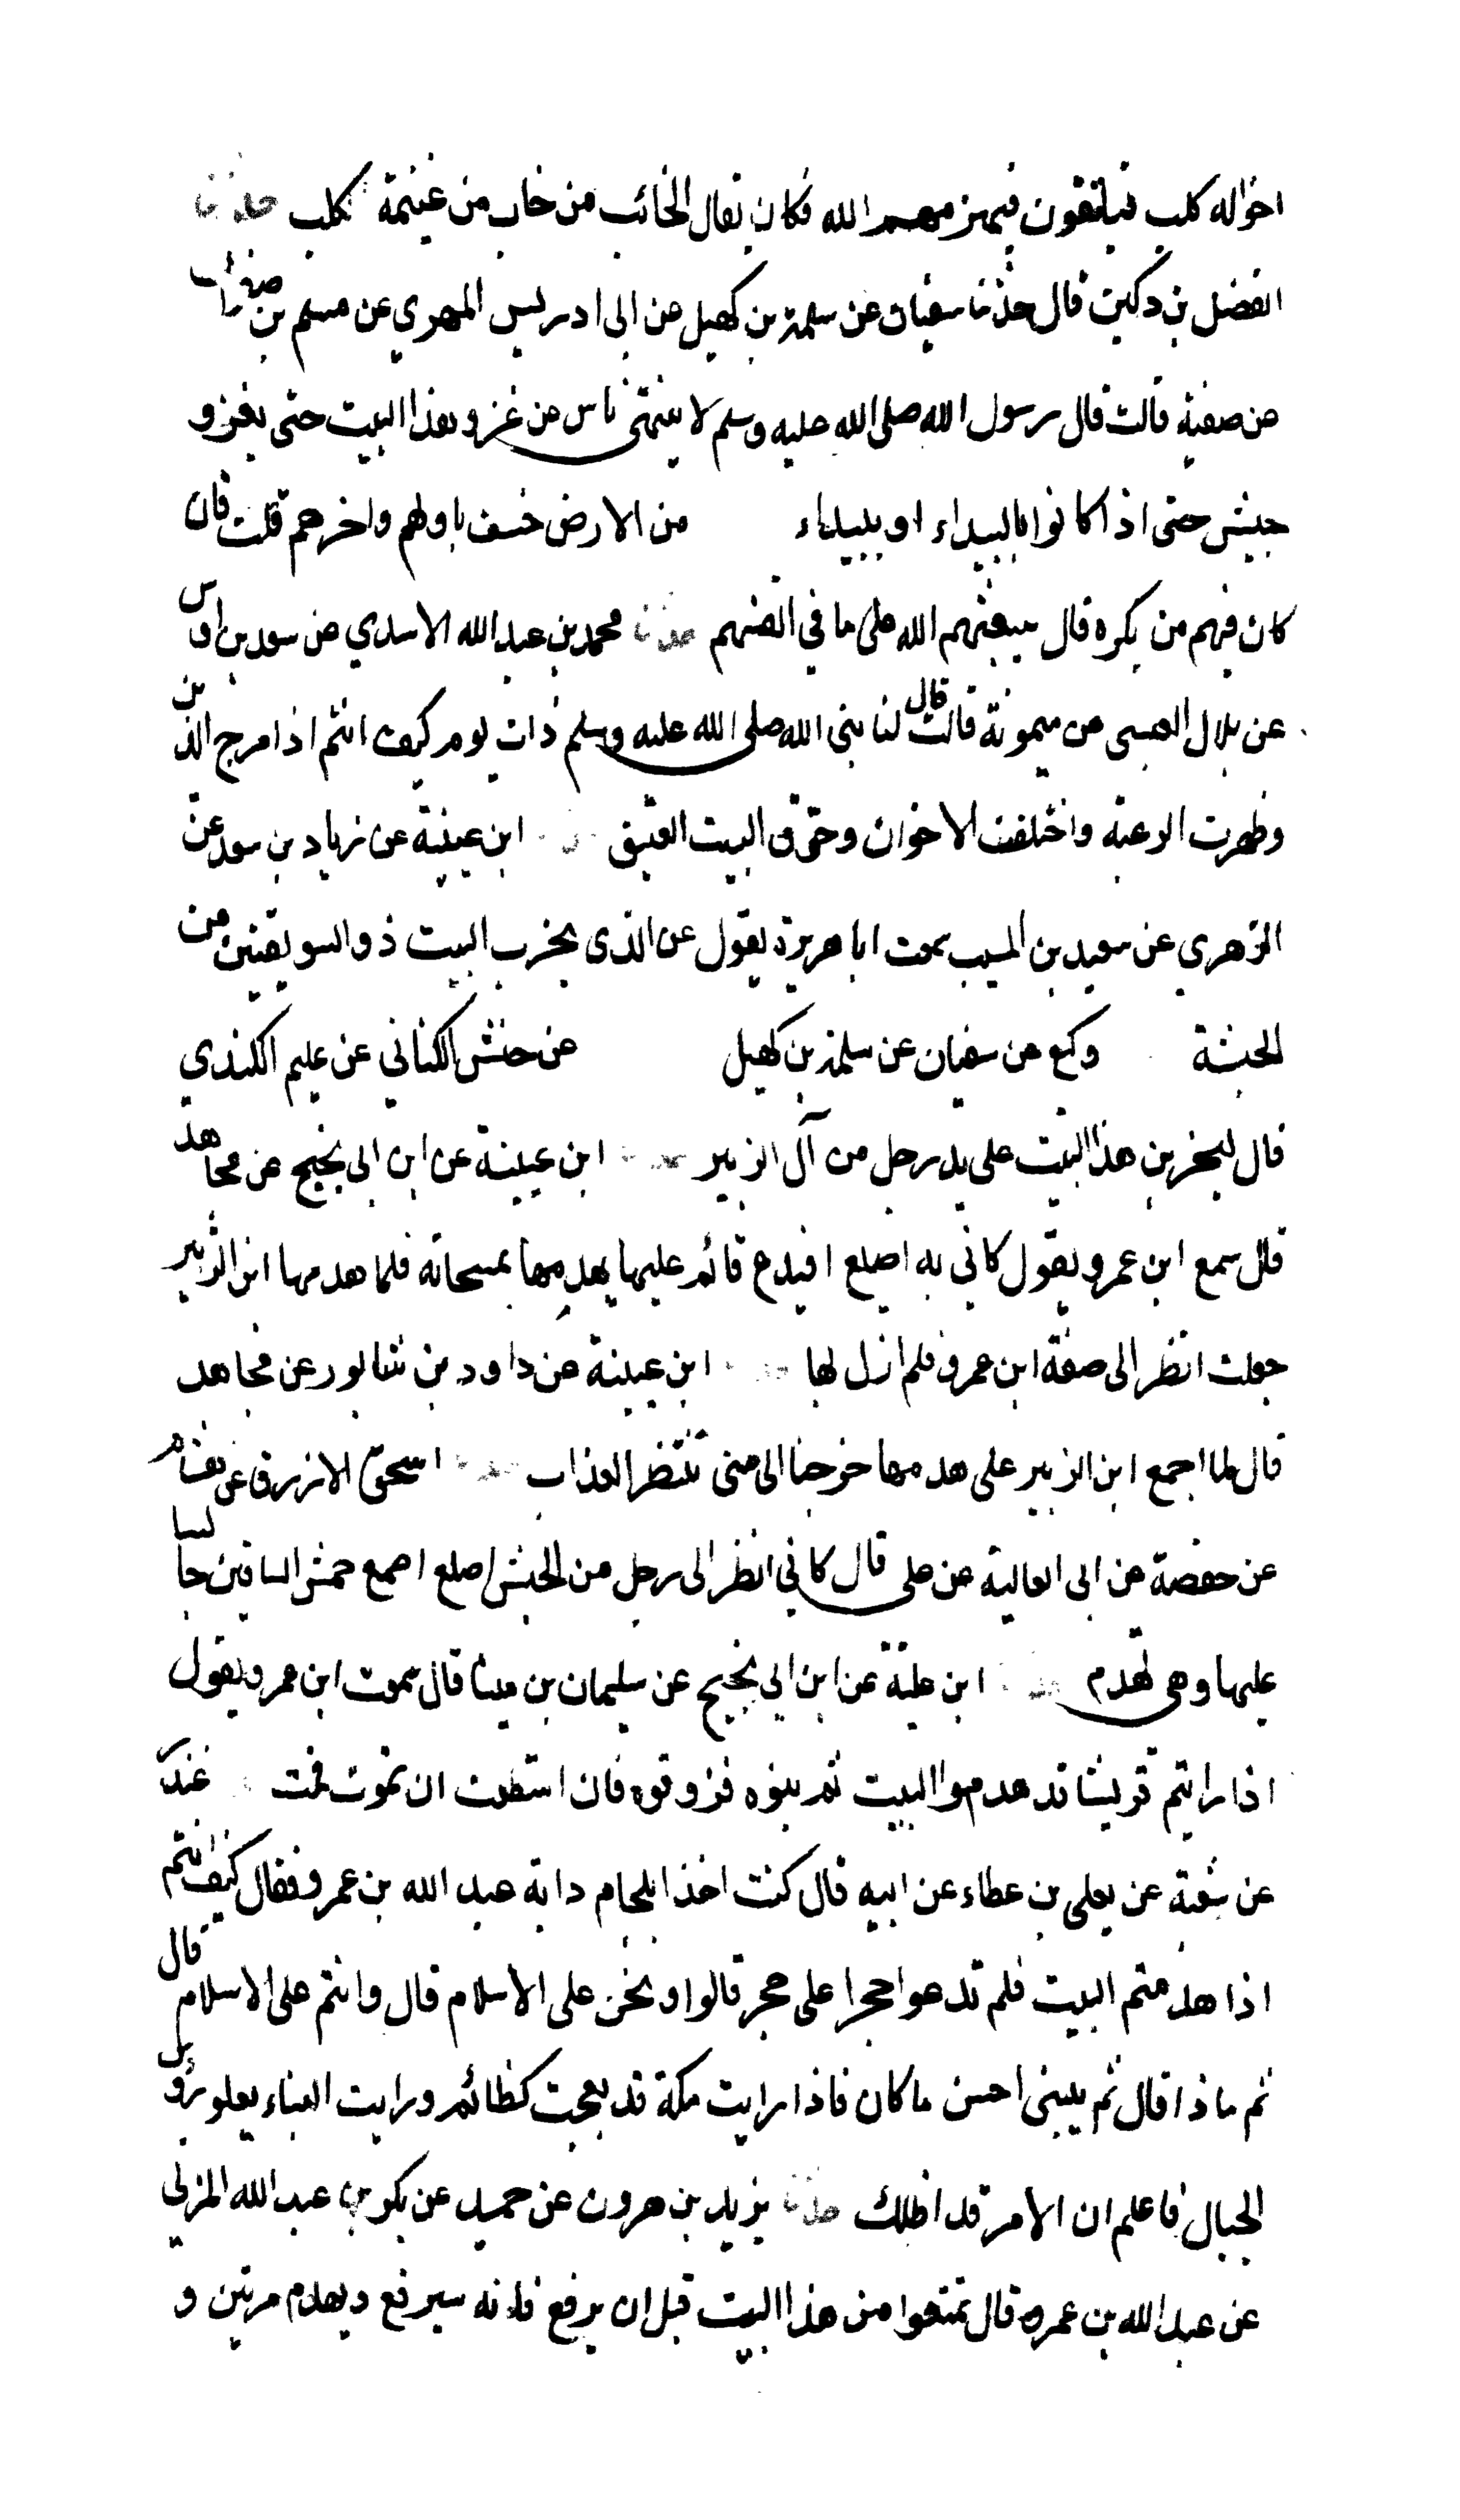 اخواله كلب فيلتقون فيهزمهم الله فكان يقال الخائب من خاب من غنيمة كلب حدثنا
الفضل بن دكين قال حدثنا سفيان عن سلمة بن كهيل عن ابى ادريس المرهبي عن مسلم بن صفوان
عن صفية قالت قال رسول الله صلى الله عليه وسلم لا ينتهى ناس عن غزو هذا البيت حتى يغزو
جيش حتى اذا كانوا بالبيداء او ببيداء من الارض خسف باولهم واخرهم قلت فان
كان فيهم من يكره قال يبعثهم الله على ما في انفسهم حدثنا محمد بن عبد الله الاسدي عن سعد بن اوس
عن بلال العبسى عن ميمونة قالت قال لنا نبى الله صلى الله عليه وسلم ذات يوم كيف انتم اذا مرج الدين
وظهرت الرغبة واختلفت الاخوان وحرق البيت العتيق ابن عيينة عن زياد بن سعد عن
الزهري عن سعيد بن المسيب سمعت ابا هريرة يقول عن الذى يخرب البيت ذو السويقتين من
الحبشة وكيع عن سفيان عن سلمة بن كهيل عن حنش الكناني عن عليم الكندي
قال ليخربن هذا البيت على يد رجل من آل الزبير ابن عيينة عن ابن ابى نجيح عن مجاهد
قال سمع ابن عمرو يقول كاني به اصيلع افيدع قائم عليها يهدمها بمسحاته فلما هدمها ابن الزبير
جعلت انظر الى صفة ابن عمرو فلم ازل لها ابن عيينة عن داود بن شابور عن مجاهد
قال لما اجمع ابن الزبير على هدمها خرجنا الى منى ننتظر العذاب حدثنا اسحق الازرق عن هشام
عن حفصة عن ابى العالية عن على قال كاني انظر الى رجل من الحبش اصلع اصمع حمش الساقين جالسا
عليها وهى تهدم ابن علية عن ابن ابي نجيح عن سليمان بن مينا قال سمعت ابن عمرو يقول
اذا رايتم قريشا قد هدموا البيت ثم بنوه فزوقوه فان استطعت ان تموت فمت غندر
عن شعبة عن يعلى بن عطاء عن ابيه قال كنت اخذا بلجام دابة عبد الله بن عمرو فقال كيف انتم
اذا هدمتم البيت فلم تدعوا حجرا على حجر قالوا ونحن على الاسلام قال وانتم على الاسلام قال
ثم ماذا قال ثم يبنى احسن ما كان فاذا رايت مكة قد بعجت كظائم ورايت البناء يعلو رؤس
الجبال فاعلم ان الامر قد اظلك حدثنا يزيد بن هرون عن حميد عن بكر بن عبد الله المزني
عن عبد الله بن عمرو قال تمتعوا من هذا البيت قبل ان يرفع فانه سيرفع ويهدم مرتين و